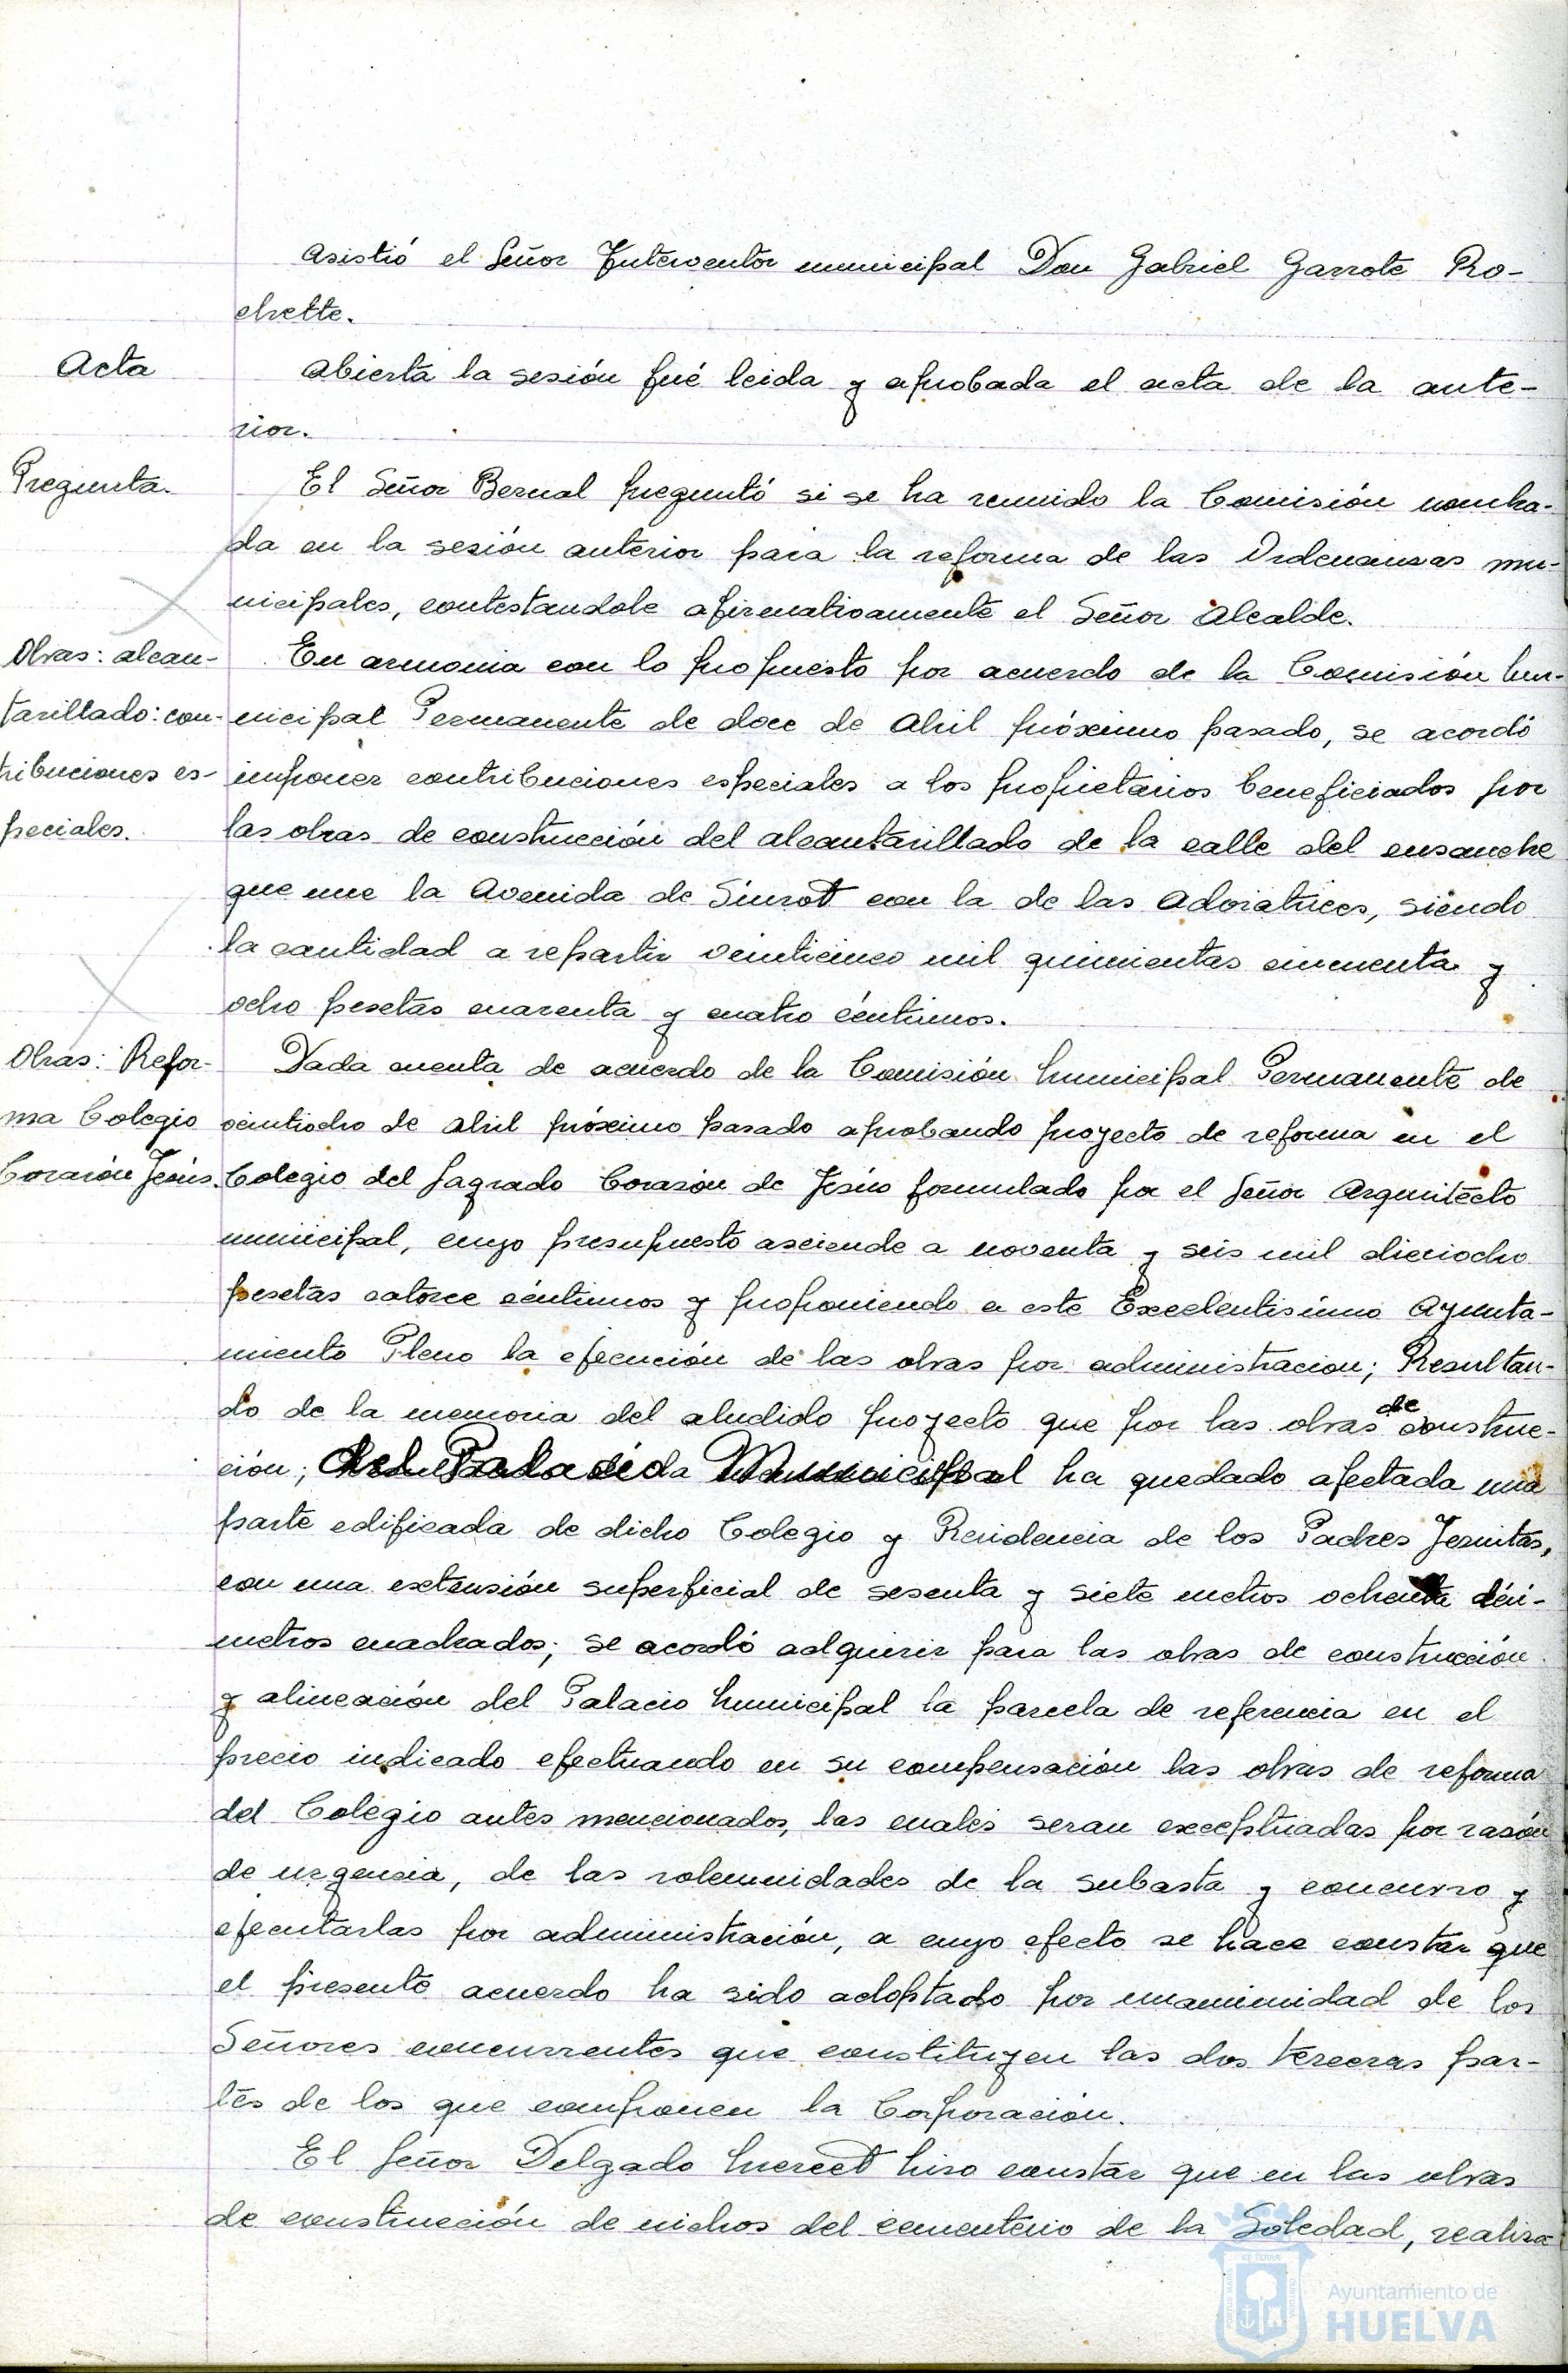 Asistió el Señor Interventor municipal Don Gabriel Garrote Ro-
chette.
Acta
Abierta la sesión fué leida y aprobada el acta de la ante-
rior.
Pregunta.
El Señor Bernal preguntó si se ha reunido la Comisión nombra-
da en la sesión anterior para la reforma de las Ordenanzas mu-
nicipales, contestandole afirmativamente el Señor Alcalde.
Obras: alcan-
tarillado: con-
tribuciones es-
peciales.
En armonia con lo propuesto por acuerdo de la Comisión Mu-
nicipal Permanente de doce de Abril próximo pasado, se acordó
imponer contribuciones especiales a los propietarios beneficiados por
las obras de construcción del alcantarillado de la calle del ensanche
que une la Avenida de Siurot con la de las Adoratrices, siendo
la cantidad a repartir veinticinco mil quinientas cincuenta y
ocho pesetas cuarenta y cuatro céntimos.
Obras: Refor-
ma Colegio
Corazón Jesús.
Dada cuenta de acuerdo de la Comisión Municipal Permanente de
veintiocho de Abril próximo pasado aprobando proyecto de reforma en el
Colegio del Sagrado Corazón de Jesús formulado por el Señor Arquitecto
municipal, cuyo presupuesto asciende a noventa y seis mil dieciocho
pesetas catorce céntimos y proponiendo a este Excelentisimo Ayunta-
miento Pleno la ejecución de las obras por administracion; Resultan-
do de la memoria del aludido proyecto que por las obras de construc-
ción; del Palacio Municipal ha quedado afectada una
parte edificada de dicho Colegio y Residencia de los Padres Jesuitas,
con una extensión superficial de sesenta y siete metros ochenta déci-
metros cuadrados; se acordó adquirir para las obras de construcción
y alineación del Palacio Municipal la parcela de referencia en el
precio indicado efectuando en su compensación las obras de reforma
del Colegio antes mencionados, las cuales seran exceptuadas por razón
de urgencia, de las solemnidades de la subasta y concurso y
ejecutarlas por administración, a cuyo efecto se hace constar que
el presente acuerdo ha sido adoptado por unanimidad de los
Señores concurrentes que constituyen las dos terceras par-
tes de los que componen la Corporación.
El Señor Delgado Mercet hizo constar que en las obras
de construcción de nichos del cementerio de la Soledad, realiza
Ayuntamiento de
HUELVA